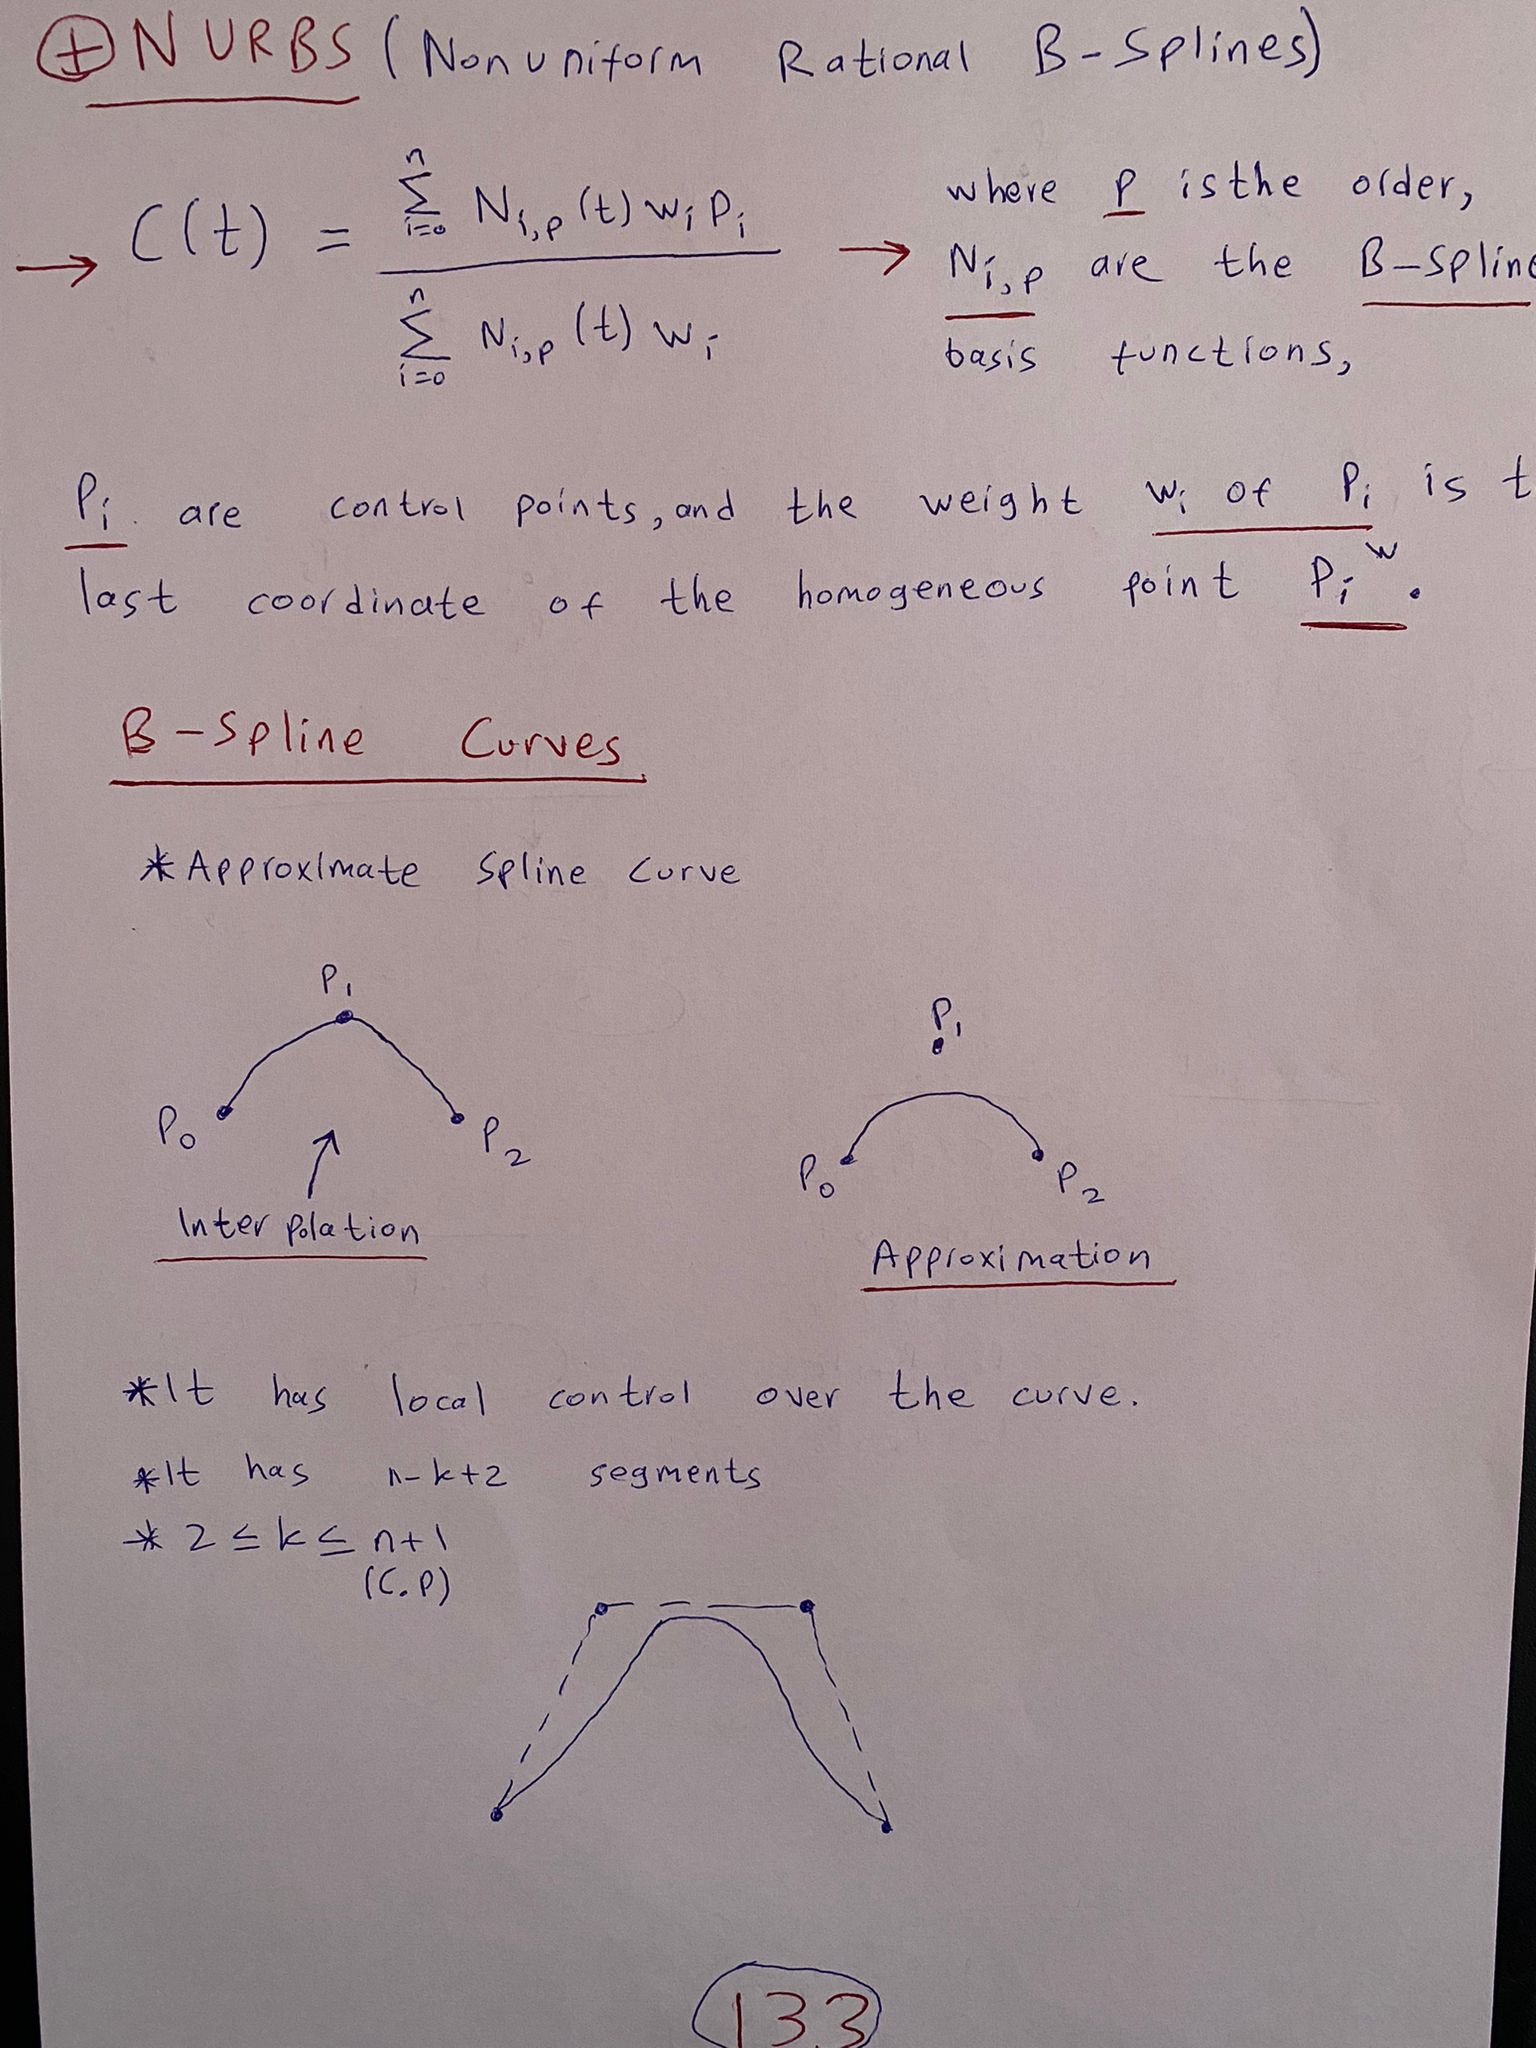 ⊕ NURBS (Nonuniform Rational B-Splines)
→ C(t) = \frac{\sum_{i=0}^{n} N_{i,p}(t) w_i P_i}{\sum_{i=0}^{n} N_{i,p}(t) w_i} → where p is the order,
N_{i,p} are the B-Spline
basis functions,
P_i are control points, and the weight w_i of P_i is t
last coordinate of the homogeneous point P_i^w.
B-Spline Curves
*Approximate Spline Curve
P_1
P_0
P_2
Interpolation
P_1
P_0
P_2
Approximation
*It has local control over the curve.
*It has n-k+2 segments
* 2 ≤ k ≤ n+1
(C.P)
133